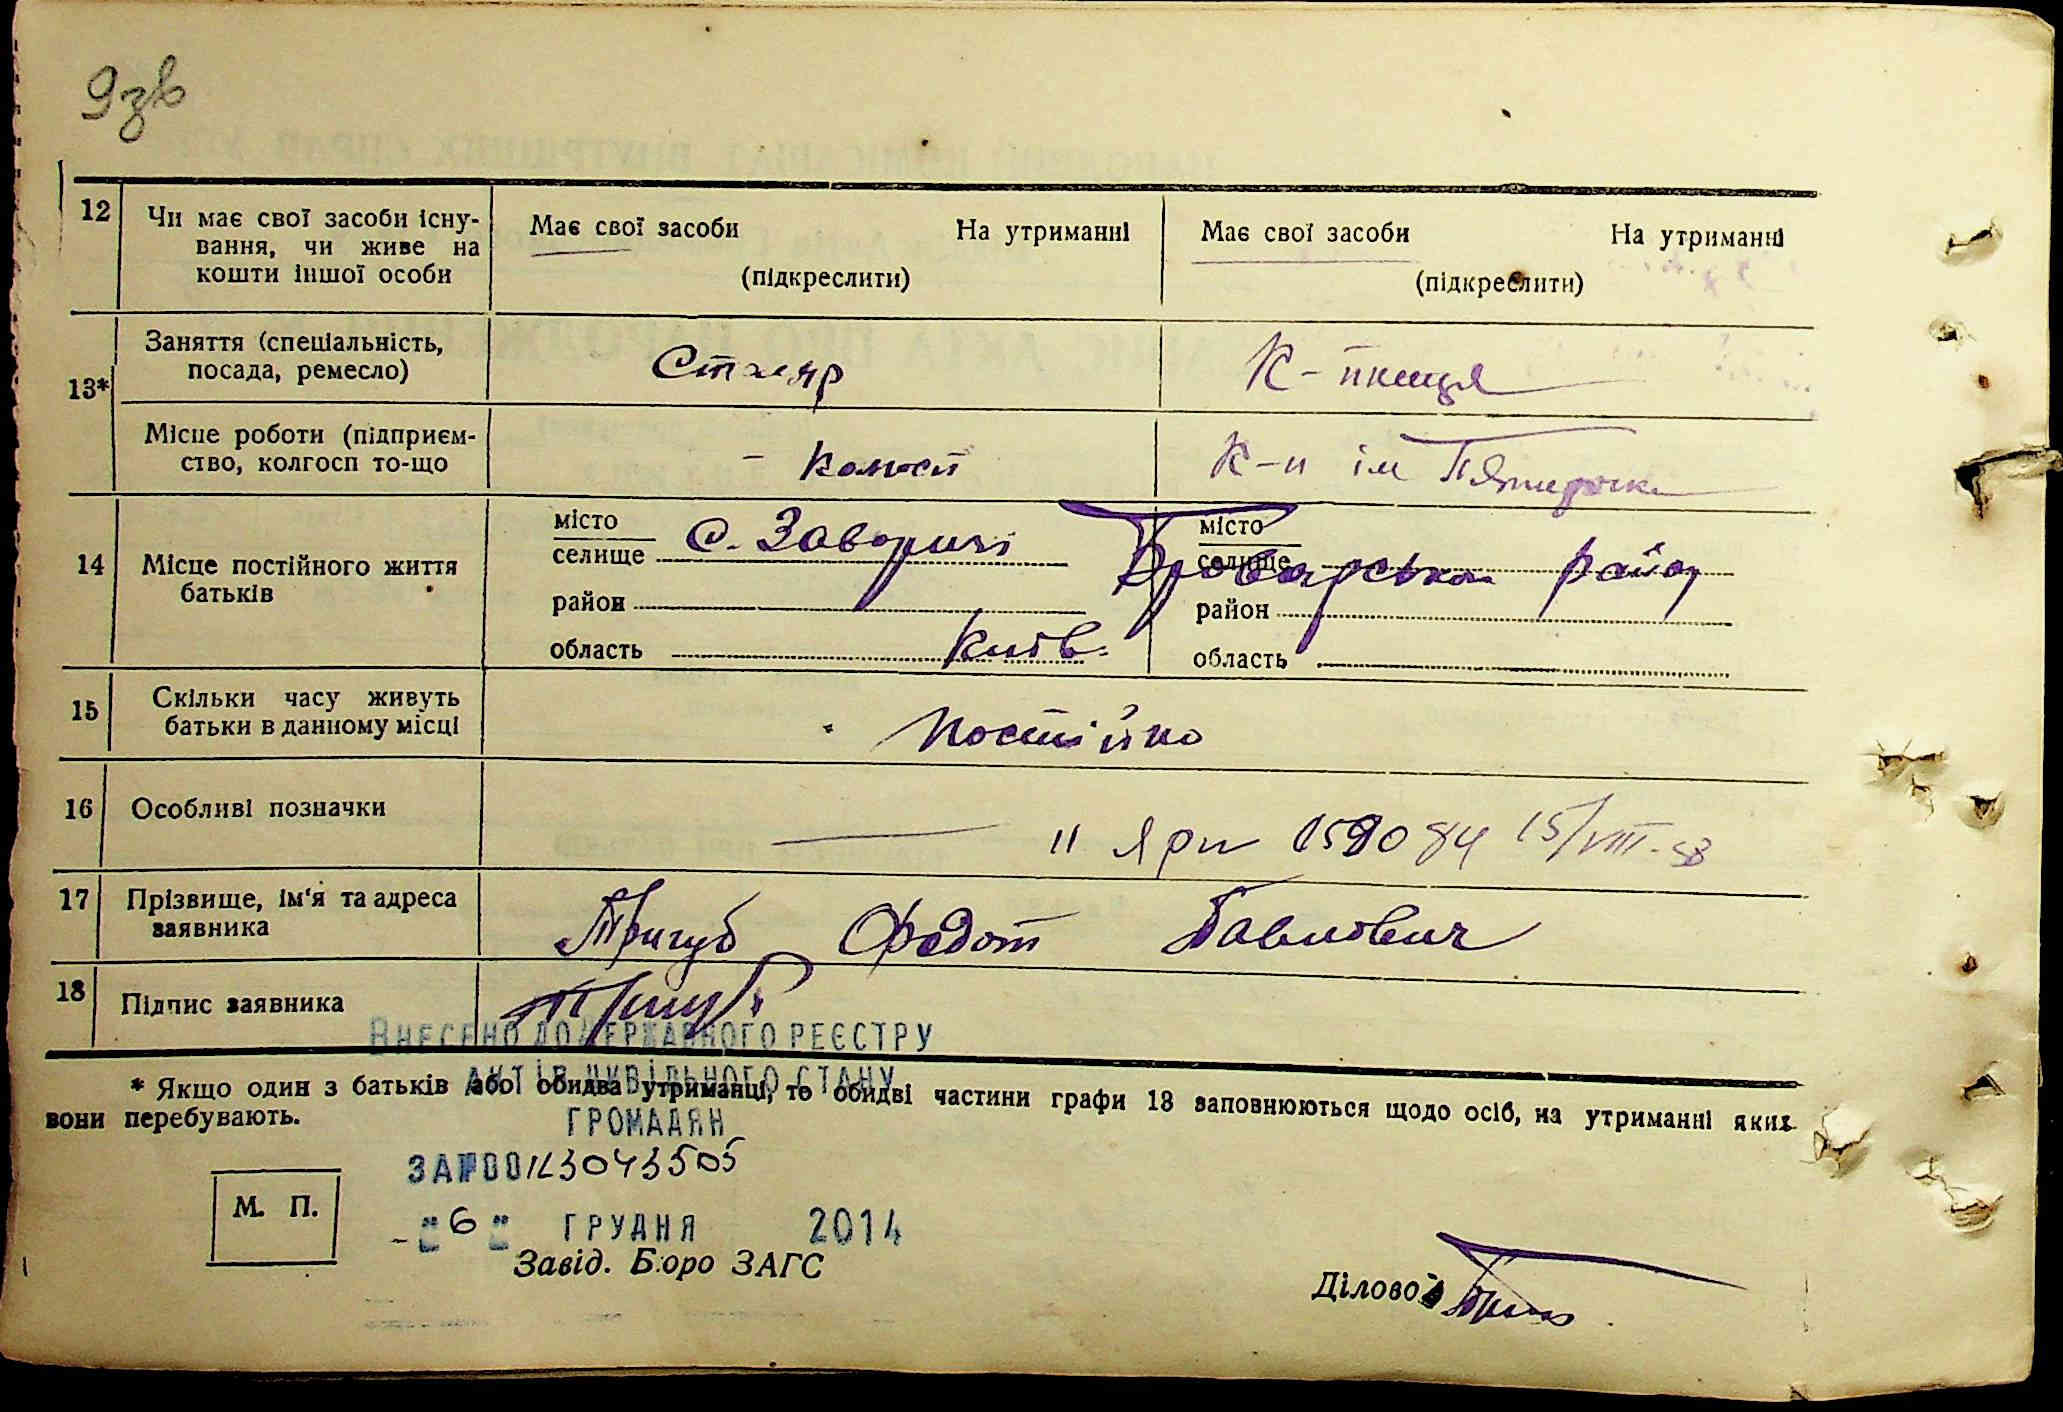 9зв
12 Чи має свої засоби існу-
вання, чи живе на
кошти іншої особи
Має свої засоби На утриманні
(підкреслити)
Має свої засоби На утриманні
(підкреслити)
13*
Заняття (спеціальність,
посада, ремесло)
Столяр
К-пниця
Місце роботи (підприєм-
ство, колгосп то-що
- Колгосп
К-п ім Пятирічки
14 Місце постійного життя
батьків
місто
селище с. Заворичі
район
область Київ.
місто
селище Броварського район
район
область
15 Скільки часу живуть
батьки в данному місці
Постійно
16 Особливі позначки
— II 159084 15/VIII-58
17 Прізвище, ім'я та адреса
заявника
Тригуб Федот Павлович
18 Підпис заявника
Тригуб
Внесено до Державного реєстру
актів цивільного стану
громадян
* Якщо один з батьків або обидва утриманці, то обидві частини графи 13 заповнюються щодо осіб, на утриманні яких
вони перебувають.
за №00123043505
"6" грудня 2014
М. П.
Завід. Бюро ЗАГС
Діловод